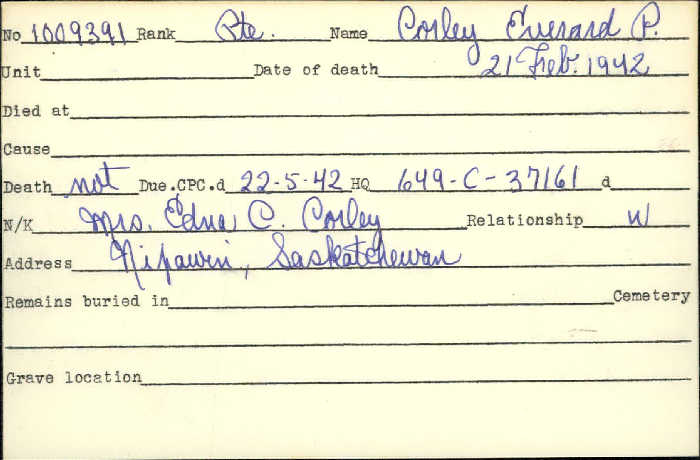 No 1009391 Rank Pte. Name Corley Everard P.
Unit Date of death 21 Feb. 1942
Died at
Cause
Death not Due.CPC.d 22-5-42 HQ 649-C-37161 d
N/K Mrs. Edna C. Corley Relationship W
Address Nipawin, Saskatchewan
Remains buried in Cemetery
Grave location